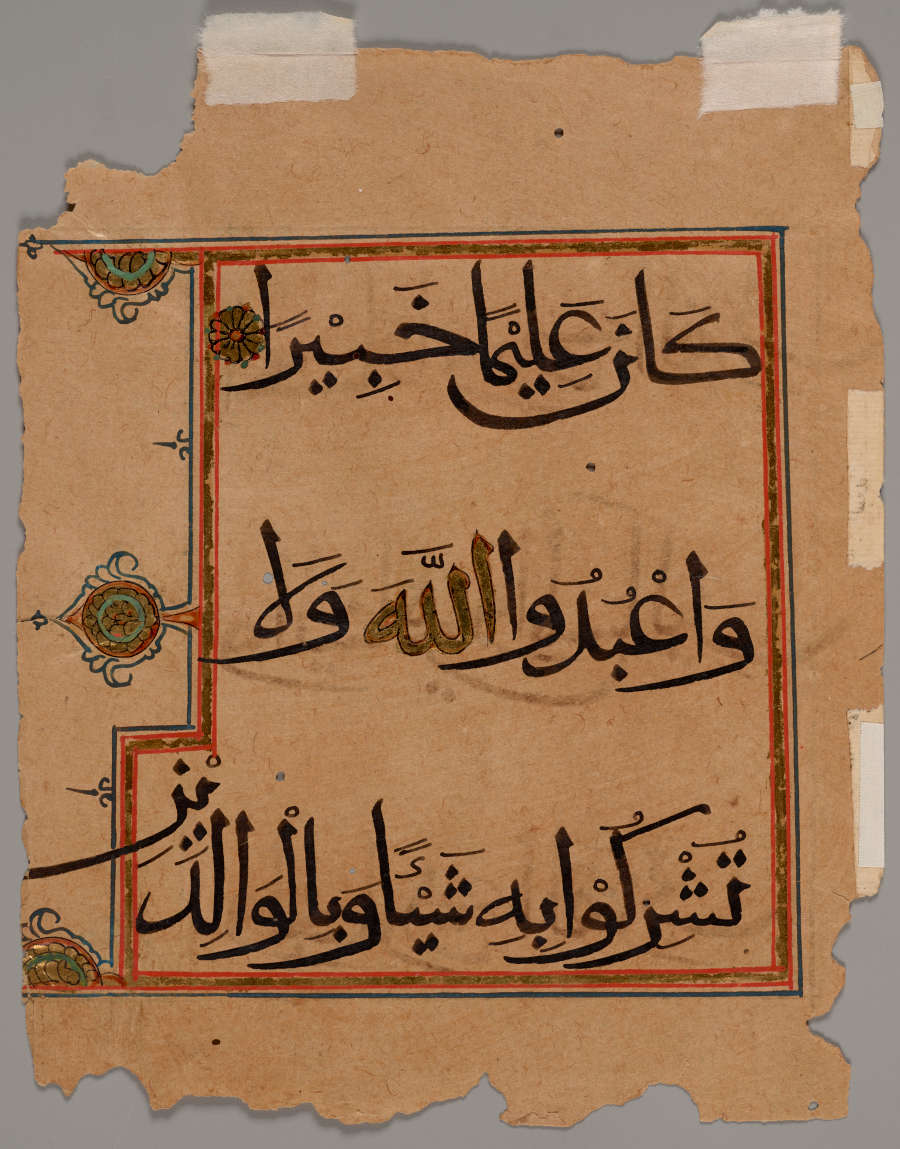 كَانَ عَلِيْمًا خَبِيْرًا
وَاعْبُدُوا اللَّهَ وَلَا
تُشْرِكُوْا بِهِ شَيْئًا وَبِالْوَالِدَيْنِ